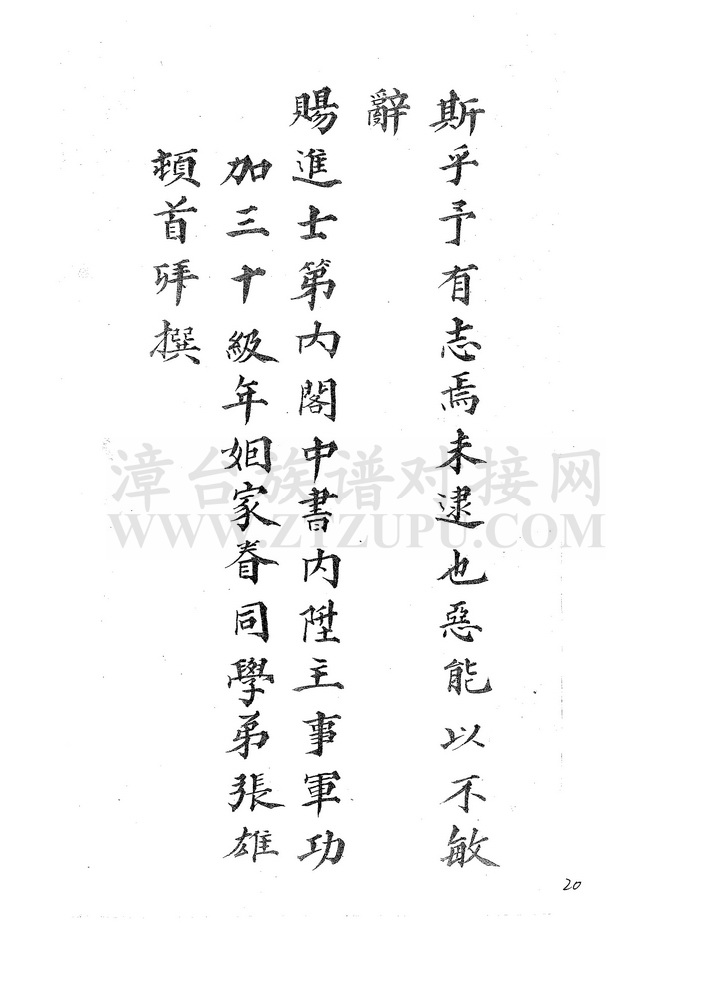 斯乎予有志焉未逮也惡能以不敏
辭
賜進士第內閣中書內陞主事軍功
加三十級年姻家眷同學弟張雄
頓首拜撰
漳台族谱对接网
WWW.ZTZUPU.COM
20